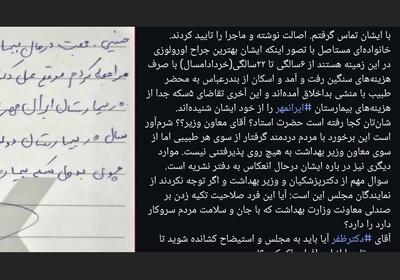 با ایشان تماس گرفتم. اصالت نوشته و ماجرا را تایید کردند.
خانواده‌ای مستاصل با تصور اینکه ایشان بهترین جراح اورولوژی
در این زمینه هستند از ۶سالگی تا ۲۲سالگی(خردادامسال) با صرف
هزینه‌های سنگین رفت و آمد و اسکان از بندرعباس به محضر
طبیب با منشی بداخلاق آمده‌اند و این آخری تقاضای ۵سکه جدا از
هزینه‌های بیمارستان #ایرانمهر را از خود ایشان شنیده‌اند.
شان‌تان کجا رفته است حضرت استاد؟ آقای معاون وزیر؟؟ شرم‌آور
است این برخورد با مردم دردمند گرفتار از سوی هر طبیبی اما از
سوی معاون وزیر بهداشت به هیچ روی پذیرفتنی نیست. موارد
دیگری نیز در باره ایشان درحال انعکاس به دفتر نشریه است.
سوال مهم از دکترپزشکیان و وزیر بهداشت و اگر توجه نکردند از
نمایندگان مجلس این است: آیا این فرد صلاحیت تکیه زدن بر
صندلی معاونت وزارت بهداشت که با جان و سلامت مردم سروکار
دارد را دارد؟
آقای #دکترظفر آیا باید به مجلس و استیضاح کشانده شوید تا
مراجعه کردم موقع عمل
در بیمارستان ایرانمهر
سال در بیمارستان